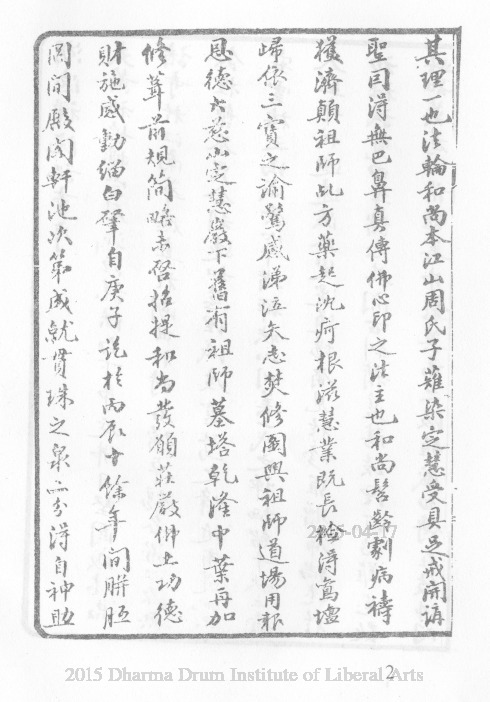 其理一也法輪和尚本江山周氏子薙染定慧受具足戒開講
聖因得無巴鼻真傳佛心印之法主也和尚髫齡劇病禱
獲濟顛祖師乩方藥起沈疴根滋慧業既長 得鸞壇
歸依三寶之諭驚感涕泣矢志焚修圖興祖師道場用報
恩德大慈山定慧巖下舊有祖師墓塔乾隆中葉再加
修葺前規簡略未啓招提和尚發願莊嚴佛土功德
財施感動緇白肇自庚子訖於丙辰十餘年間胼胝
罔間殿閣軒池次第成就貫珠之泉 得自神助
2015-04-17
2015 Dharma Drum Institute of Liberal Arts
2